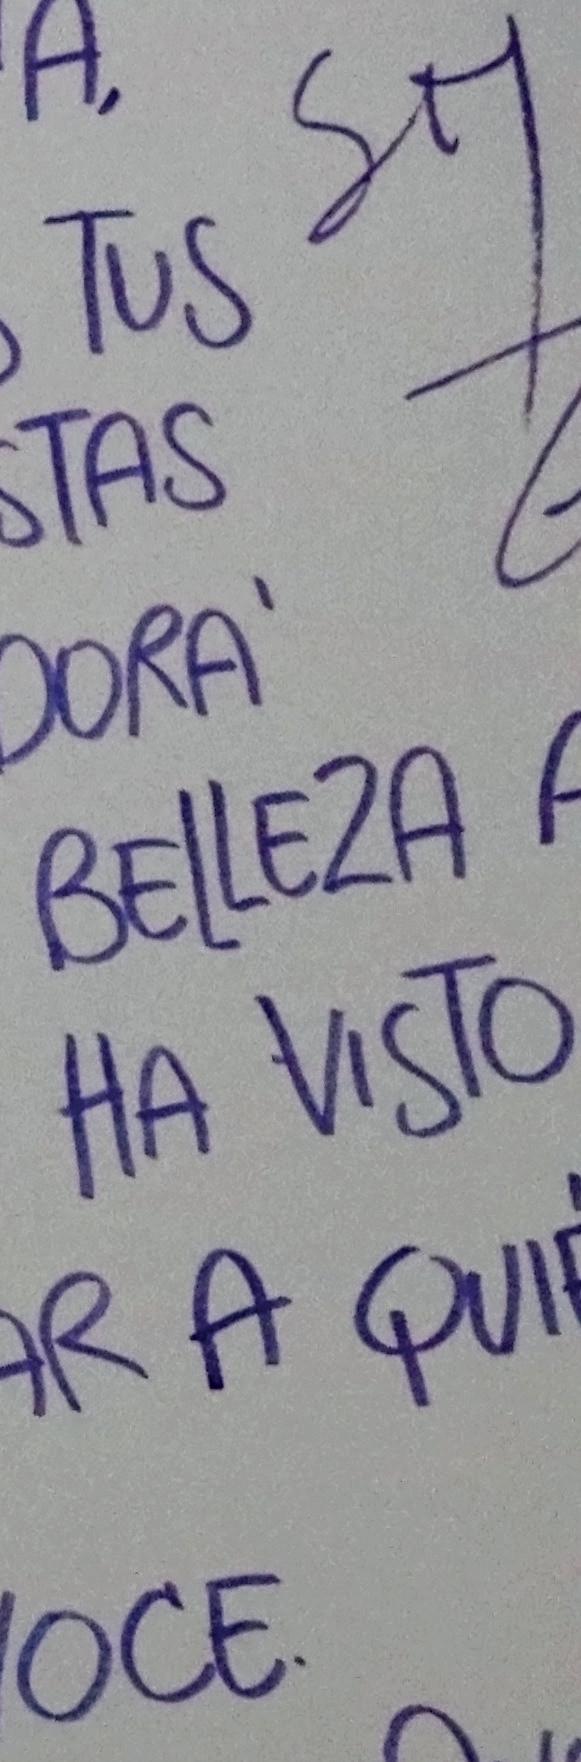 A.
TUS
STAS
DORÁ
BELLEZA A
HA VISTO
AR A QUIÉ
OCE.